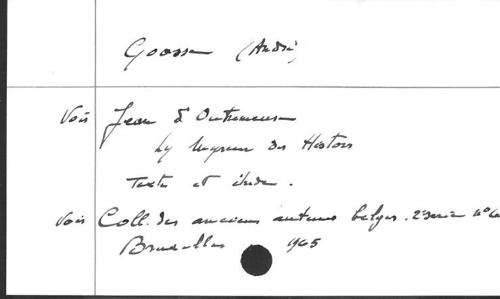 Goosse (André)
Voir Jean d'Outremeuse
Ly Myreur des Histors
Texte et étude.
Voir Coll. des anciens auteurs belges. 2e série n° 6
Bruxelles 1965